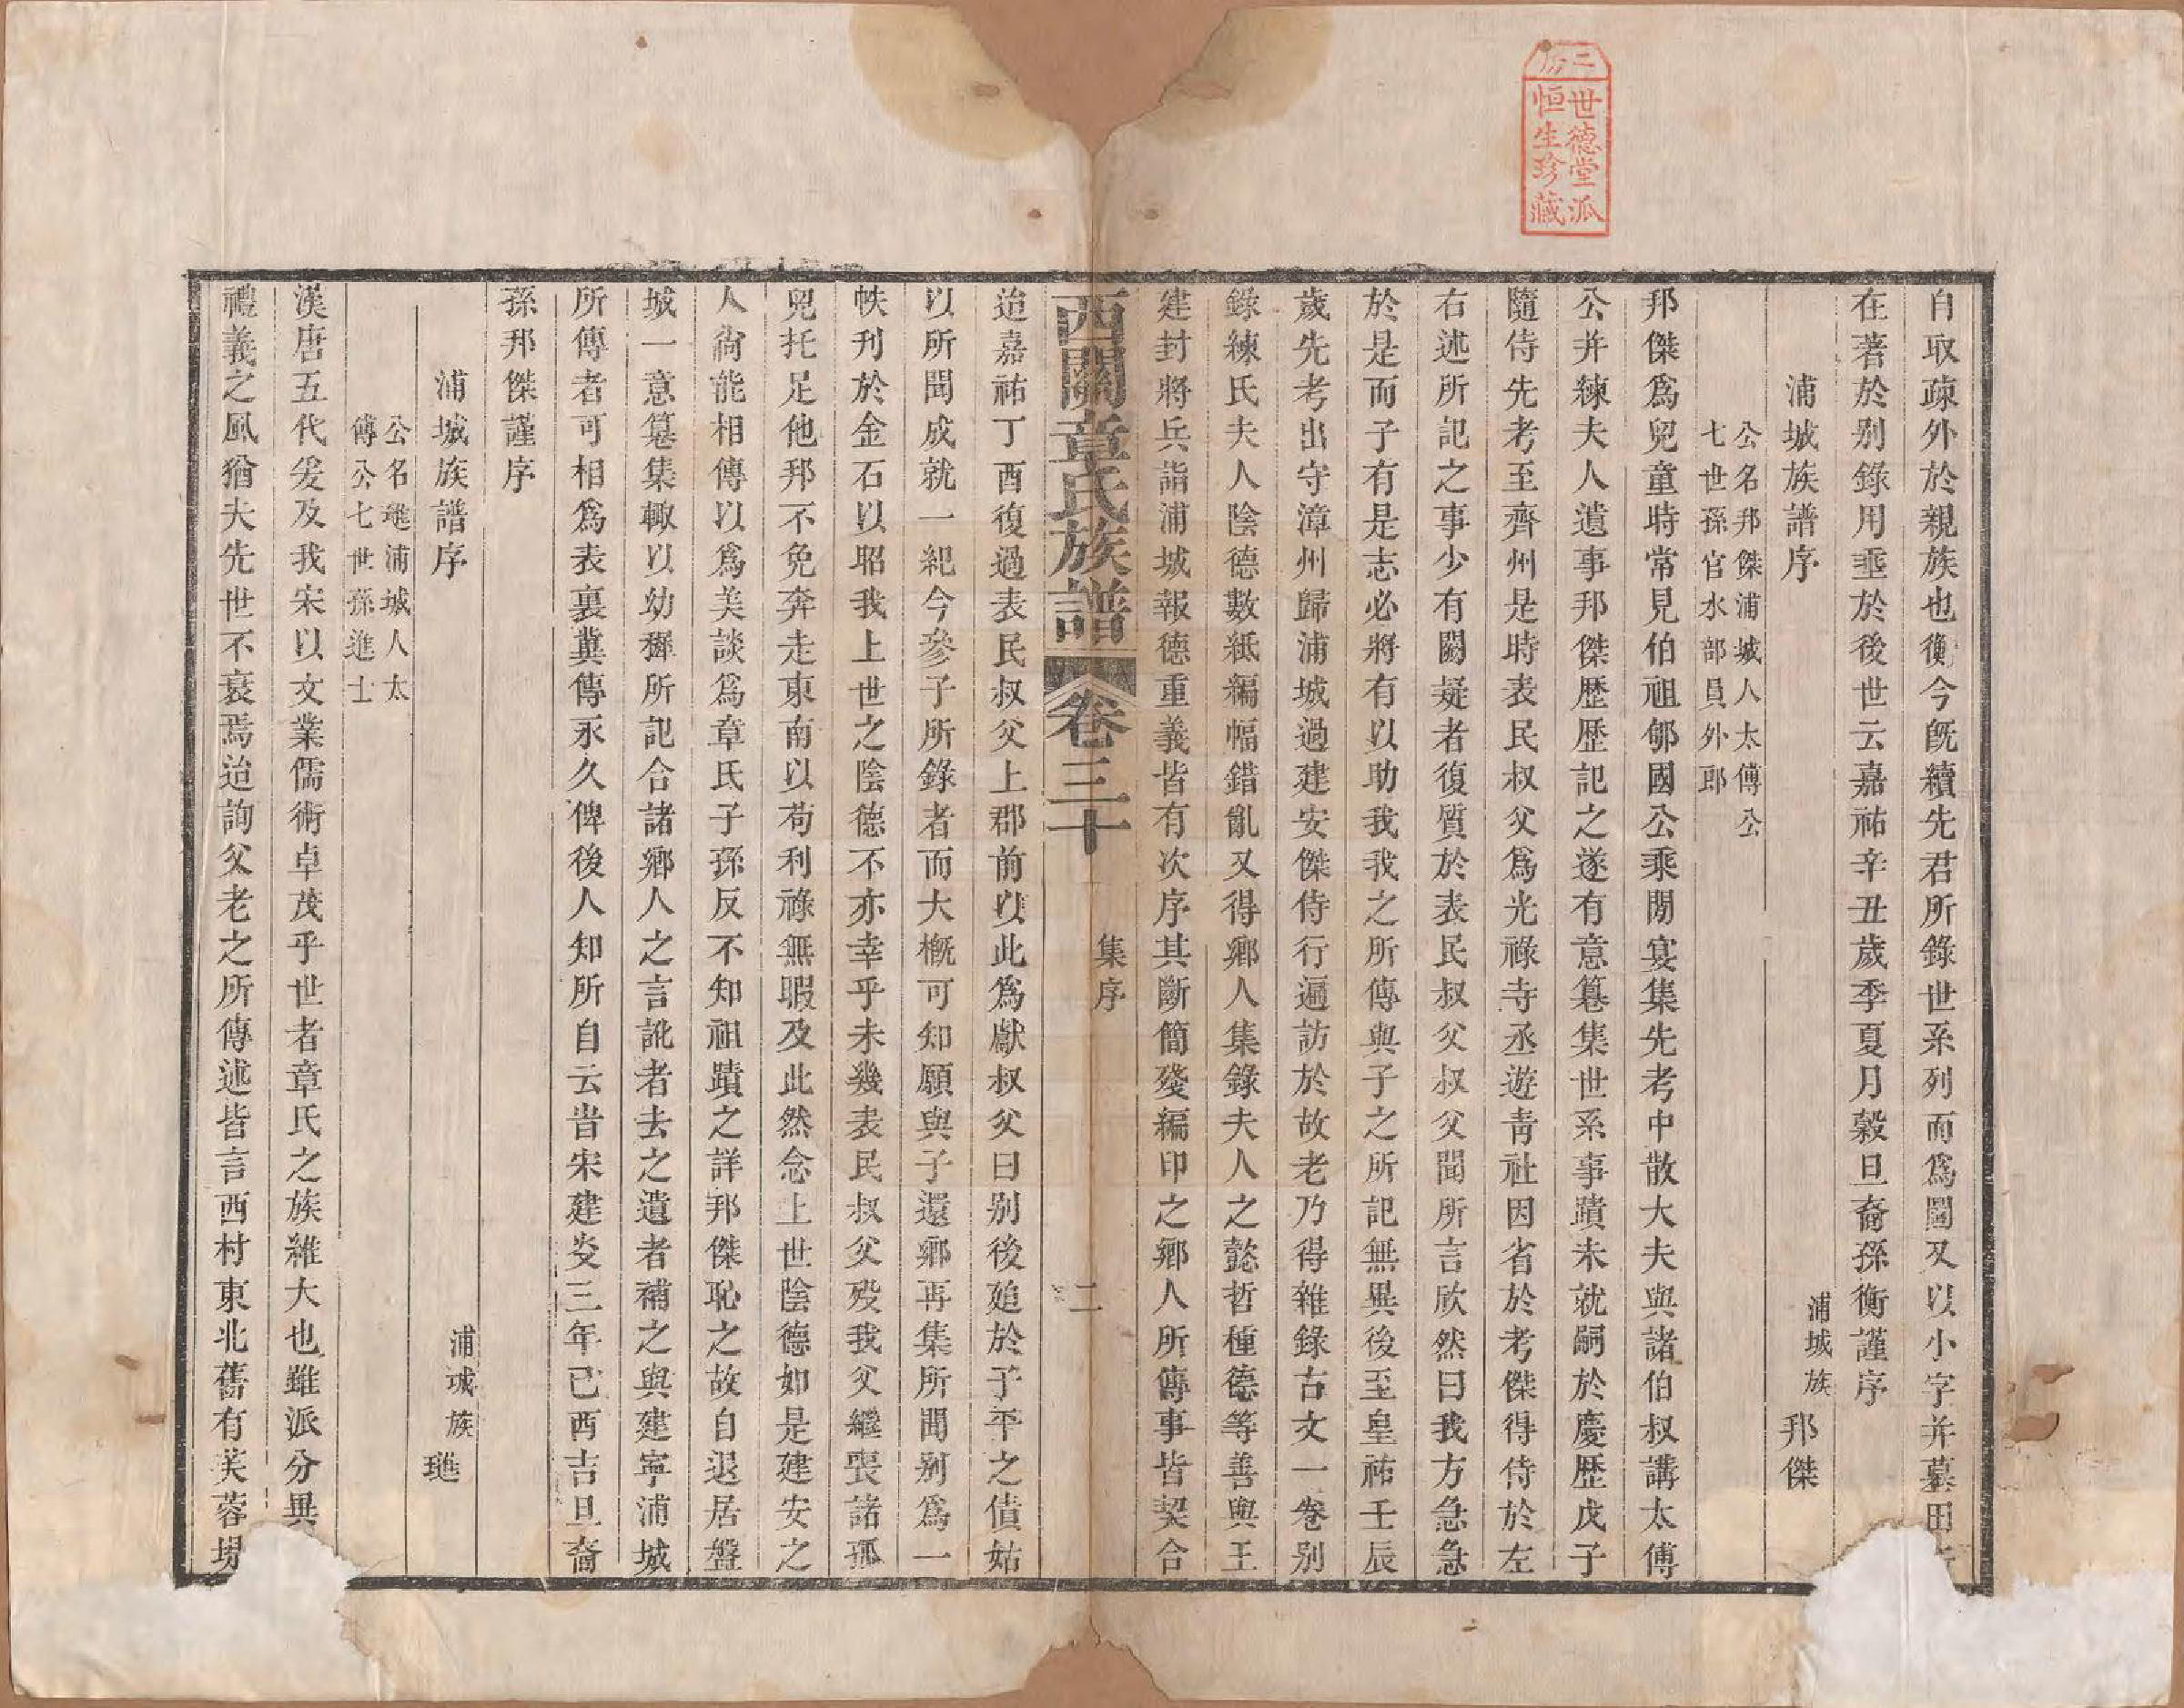 二房
世德堂派
恒生珍藏
自取疎外於親族也衡今旣續先君所錄世系列而爲圖又以小字并墓田
在著於别錄用埀於後世云嘉祐辛丑歲季夏月穀旦裔孫衡謹序
浦城族譜序
浦城族
邦傑
公名邦傑浦城人太傅公
七世孫官水部員外郎
邦傑爲兒童時常見伯祖郇國公乘閒宴集先考中散大夫與諸伯叔講太傅
公并練夫人遺事邦傑歴歴記之遂有意簒集世系事蹟未就嗣於慶歴戊子
隨侍先考至齊州是時表民叔父爲光祿寺丞遊靑社因省於考傑得侍於左
右述所記之事少有闕疑者復質於表民叔父叔父聞所言欣然曰我方急急
於是而子有是志必將有以助我我之所傳與子之所記無異後至皇祐壬辰
歲先考出守漳州歸浦城過建安傑侍行遍訪於故老乃得雜錄古文一卷别
錄練氏夫人陰德數紙編幅錯亂又得鄉人集錄夫人之懿哲種德等善與王
建封將兵詣浦城報德重義皆有次序其斷簡殘編印之鄉人所傳事皆契合
西關章氏族譜
卷三十
集序
二
迨嘉祐丁酉復過表民叔父上郡前以此爲獻叔父曰别後廹於予平之債姑
以所聞成就一紀今參子所錄者而大槪可知願與子還鄉再集所聞别爲一
帙刋於金石以昭我上世之陰德不亦幸乎未幾表民叔父歿我父繼喪諸孤
兒托足他邦不免奔走東南以苟利祿無暇及此然念上世陰德如是建安之
人尙能相傳以爲美談爲章氏子孫反不知祖蹟之詳邦傑恥之故自退居盤
城一意簒集輙以幼穉所記合諸鄉人之言訛者去之遺者補之與建寧浦城
所傳者可相爲表裏冀傳永久俾後人知所自云旹宋建炎三年己酉吉旦裔
孫邦傑謹序
浦城族譜序
浦城族
琎
公名琎浦城人太
傅公七世孫進士
漢唐五代爰及我宋以文業儒術卓茂乎世者章氏之族維大也雖派分異
禮義之風猶夫先世不衰焉迨詢父老之所傳述皆言西村東北舊有芙蓉場